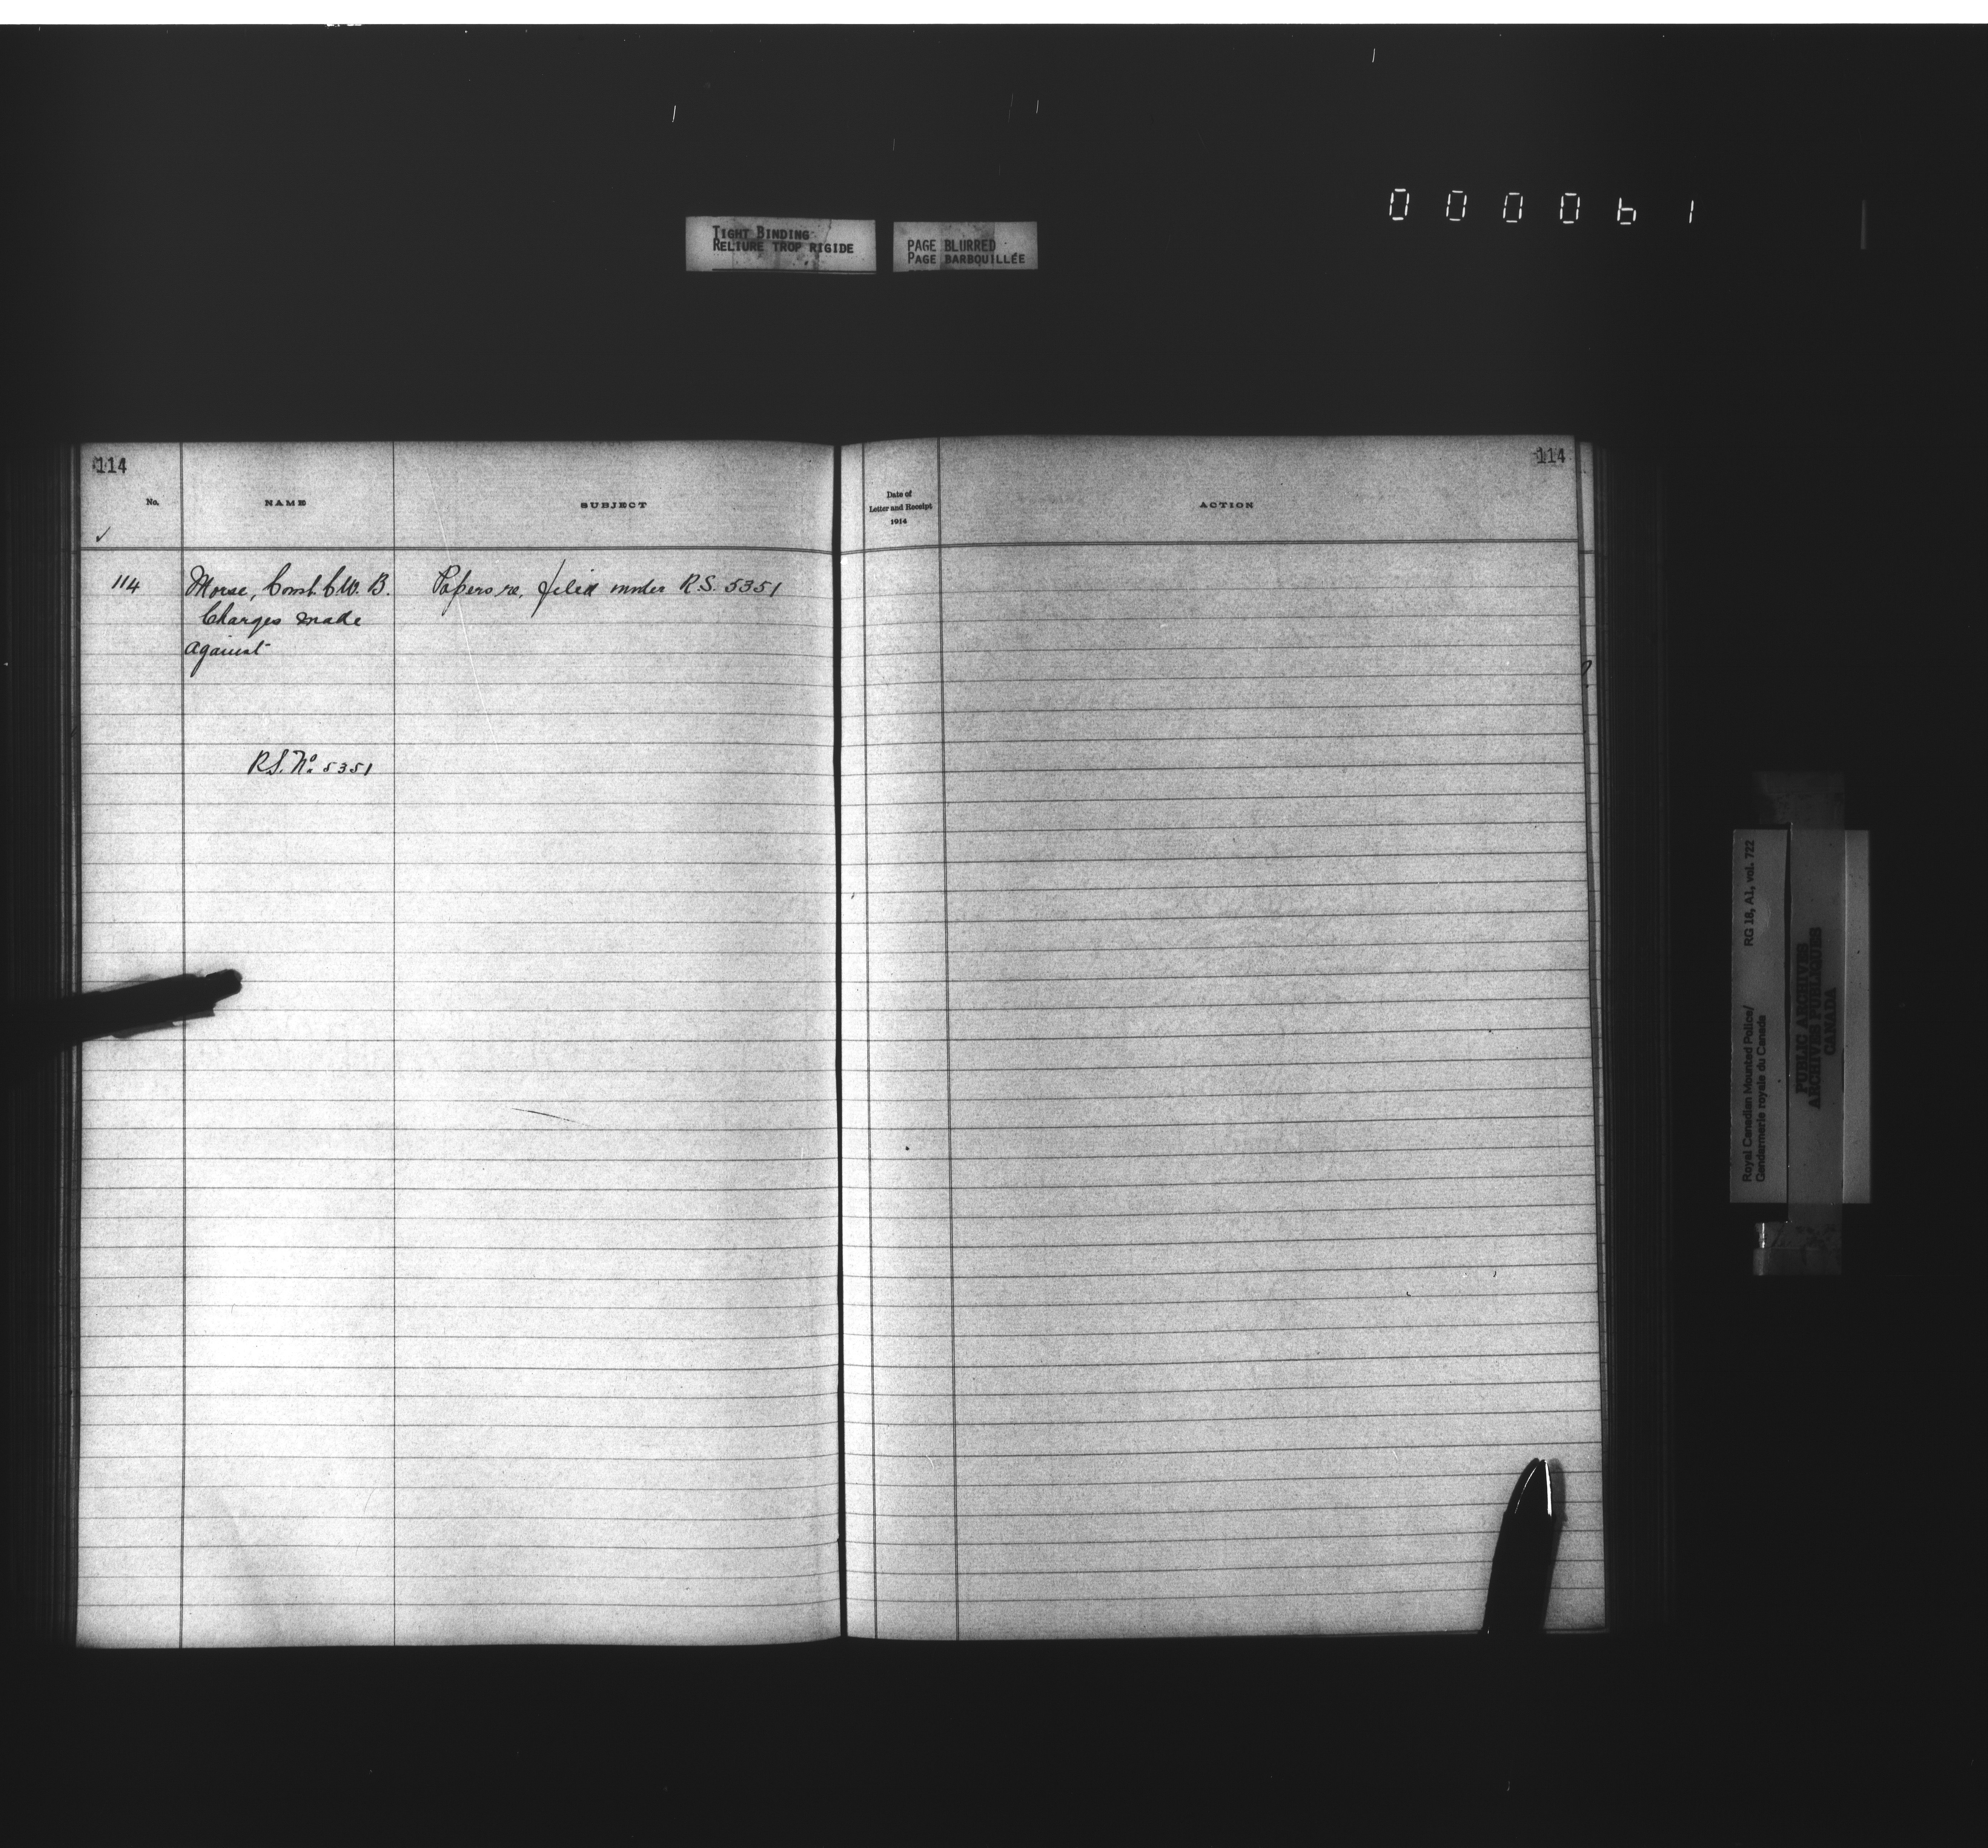 000061
TIGHT BINDING
RELIURE TROP RIGIDE
PAGE BLURRED
PAGE BARBOUILLÉE
114
No.
NAME
SUBJECT
114 Morse, Const. C.W.B. Papers re, filed under R.S. 5351
Charges made
against
R.S. No. 5351
114
Date of
Letter and Receipt
1914
ACTION
Royal Canadian Mounted Police/
Gendarmerie royale du Canada
RG 18, A1, vol. 722
PUBLIC ARCHIVES
ARCHIVES PUBLIQUES
CANADA